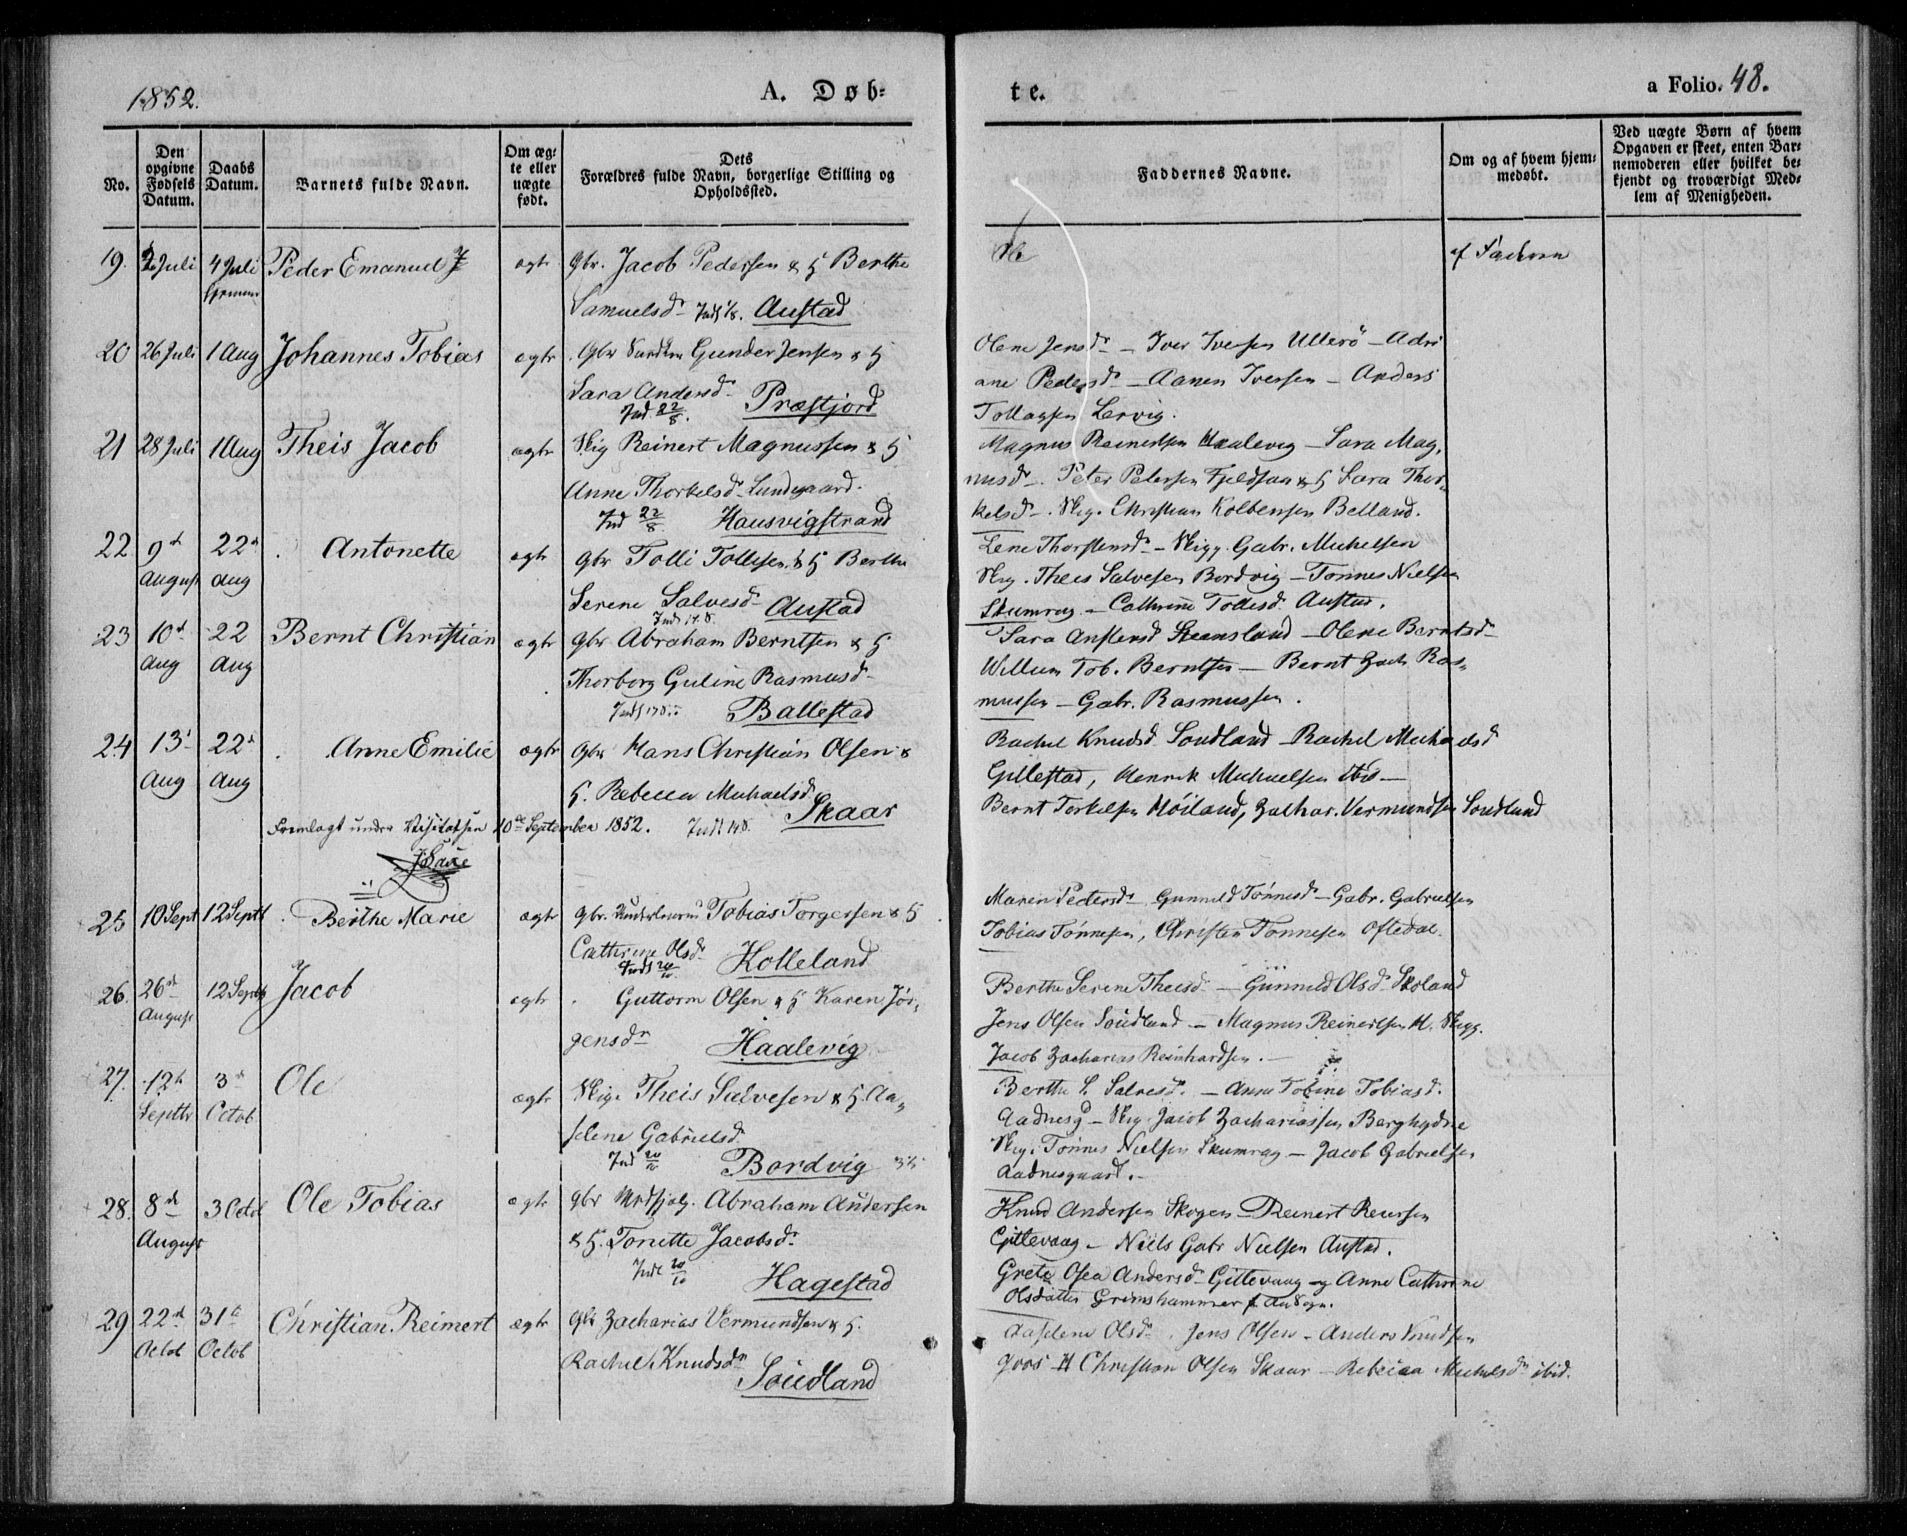 1852.
A. Døb-
te.
a Folio. 48.
No.
Den opgivne Fødsels Datum.
Daabs Datum.
Barnets fulde Navn.
Om ægte eller uægte født.
Dets
Forældres fulde Navn, borgerlige Stilling og
Opholdssted.
Faddernes Navne.
Om og af hvem hjem-
medøbt.
Ved uægte Børn af hvem
Opgaven er skeet, enten Bar-
nemoderen eller hvilket be-
kjendt og troværdigt Med-
lem af Menigheden.
19. 2 Juli 4 Juli Peder Emanuel ægte Gbr. Jacob Pedersen & H Berthe
Samuelsdr Austad
af Faderen
20 26 Juli 1 Aug Johannes Tobias ægte Gbr Gunder Jensen & H
Sara Andersdr Præstjord
Ind 22/8.
Olene Jensdr - Iver Iversen Ullerö - Adri
ane Pedersd - Aanen Iversen - Anders
Tollagsen Lervig.
21 28 Juli 1 Aug Theis Jacob ægte Skig Reinert Magnussen & H
Anne Thorkelsd Lundegaard.
Ind 22/8 Hausvigstrand
Magnus Reinertsen Haalevig - Sara Mag,
nusd - Peter Petersen Fjeldsaa & H Sara Thor-
kelsd - Skig. Christian Kolbensen Belland.
22 9d August 22d Aug Antonette ægte Gbr Tolli Tollisen & H Berthe
Serene Salvesd Austad
Lene Thorstensdr - Skigg. Gabr. Michelsen
Skig. Theis Salvesen Bordvig - Tønnes Nielsen
Skumrag - Cathrine Tollesd. Austad.
23 10d Aug 22 Aug Bernt Christian ægte Gbr Abraham Berntsen & H
Thorborg Guline Rasmusd
Ballestad
Sara Austensd Steensland - Olene Berntsd
Willum Tob. Berntsen - Bernt Zach Ras-
mussen - Gabr. Rasmussen.
24 13d Aug 22d Aug Anne Emilie ægte Gbr Hans Christian Olsen &
H. Rebecca Michaelsd
Skaar
Rachel Knudsd. Soudland - Rachel Michaelsd
Gillestad, Henrik Michaelsen ibid -
Bernt Torkelsen Høiland, Zachar. Vermundsen Soudland
Fremlagt under Visitatsen 10de September 1852.
25 10 Sept 12 Sept Berthe Marie ægte Gbr. Tobias Torgersen & H
Cathrine Olsdr
Kolleland
Maren Pedersdr Gunnild Tönnesdr - Gabr. Gabrielsen
Tobias Tönnesen, Christen Tönnesen Oftedal
26. 26d August 12 Septb Jacob ægte Guttorm Olsen & H Karen Jör-
gensdr Haalevig
Berthe Serene Theisd - Gunnild Olsd Skoland
Jens Olsen Soudland - Magnus Reinertsen H. Skigg.
Jacob Zacharias Reinhardsen.
27. 12t Septbr 3d Octob Ole ægte Skig. Theis Salvesen & H. Aa-
selene Gabrielsd
Ind 20/10 Bordvig
Berthe S. Salvesd. - Anne Tobine Tobiasd.
Aadnesg - Skig. Jacob Zachariassen Berghydne
Skig. Tönnes Nielsen Skumrag - Jacob Gabrielsen
Aadnesgaard.
28. 8d August 3 Octob Ole Tobias ægte Gbr Abraham Andersen
& H. Tonette Jacobsdr
Ind 20/10 Hagestad
Knud Andersen Skogen - Reinert
Gittevaag - Niels Gabr Nielsen Austad.
Grete Osea Andersdr Gittevaag og Anne Cathrine
Olsdatter Grimshammer
29 22d Octob 31te Octob Christian Reimert ægte Gbr Zacharias Vermundsen & H.
Rachel Knudsdr
Soudland
Aaselene Olsdr. Jens Olsen - Anders Knudsen
H Christian Olsen Skaar - Rebecca Michelsdr ibid.